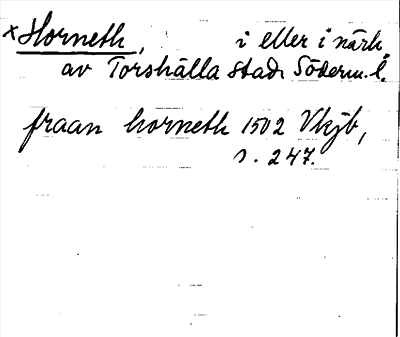 ×Horneth, i eller i närh.
av Torshälla stad, Söderm. l.
fraan horneth 1502 Vkjb,
s. 247.